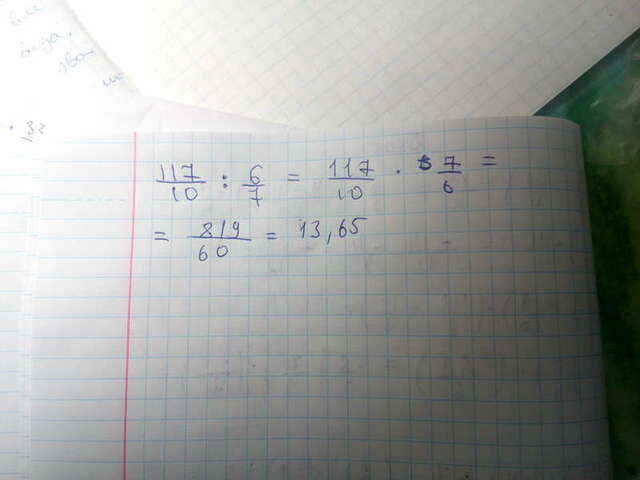 117/10 : 6/7 = 117/10 · 7/6 =
= 819/60 = 13,65